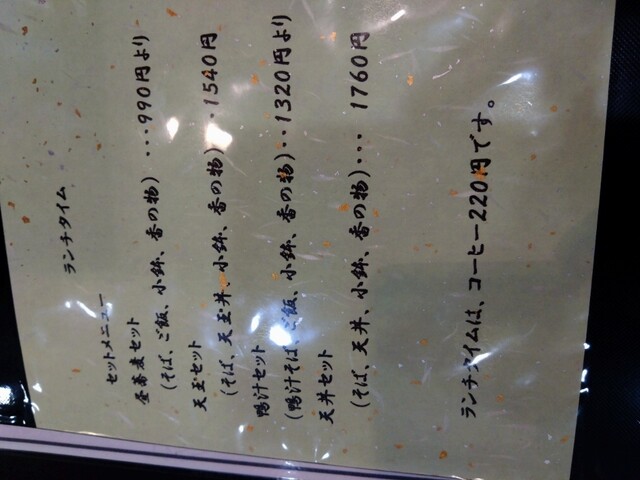 ランチタイム
セットメニュー
昼蕎麦セット
(そば、ご飯、小鉢、香の物) ・・・990円より
天玉セット
(そば、天玉丼、小鉢、香の物)・・1540円
鴨汁セット
(鴨汁そば、ご飯、小鉢、香の物)・・1320円より
天丼セット
(そば、天丼、小鉢、香の物)・・・ 1760円
ランチタイムは、コーヒー220円です。